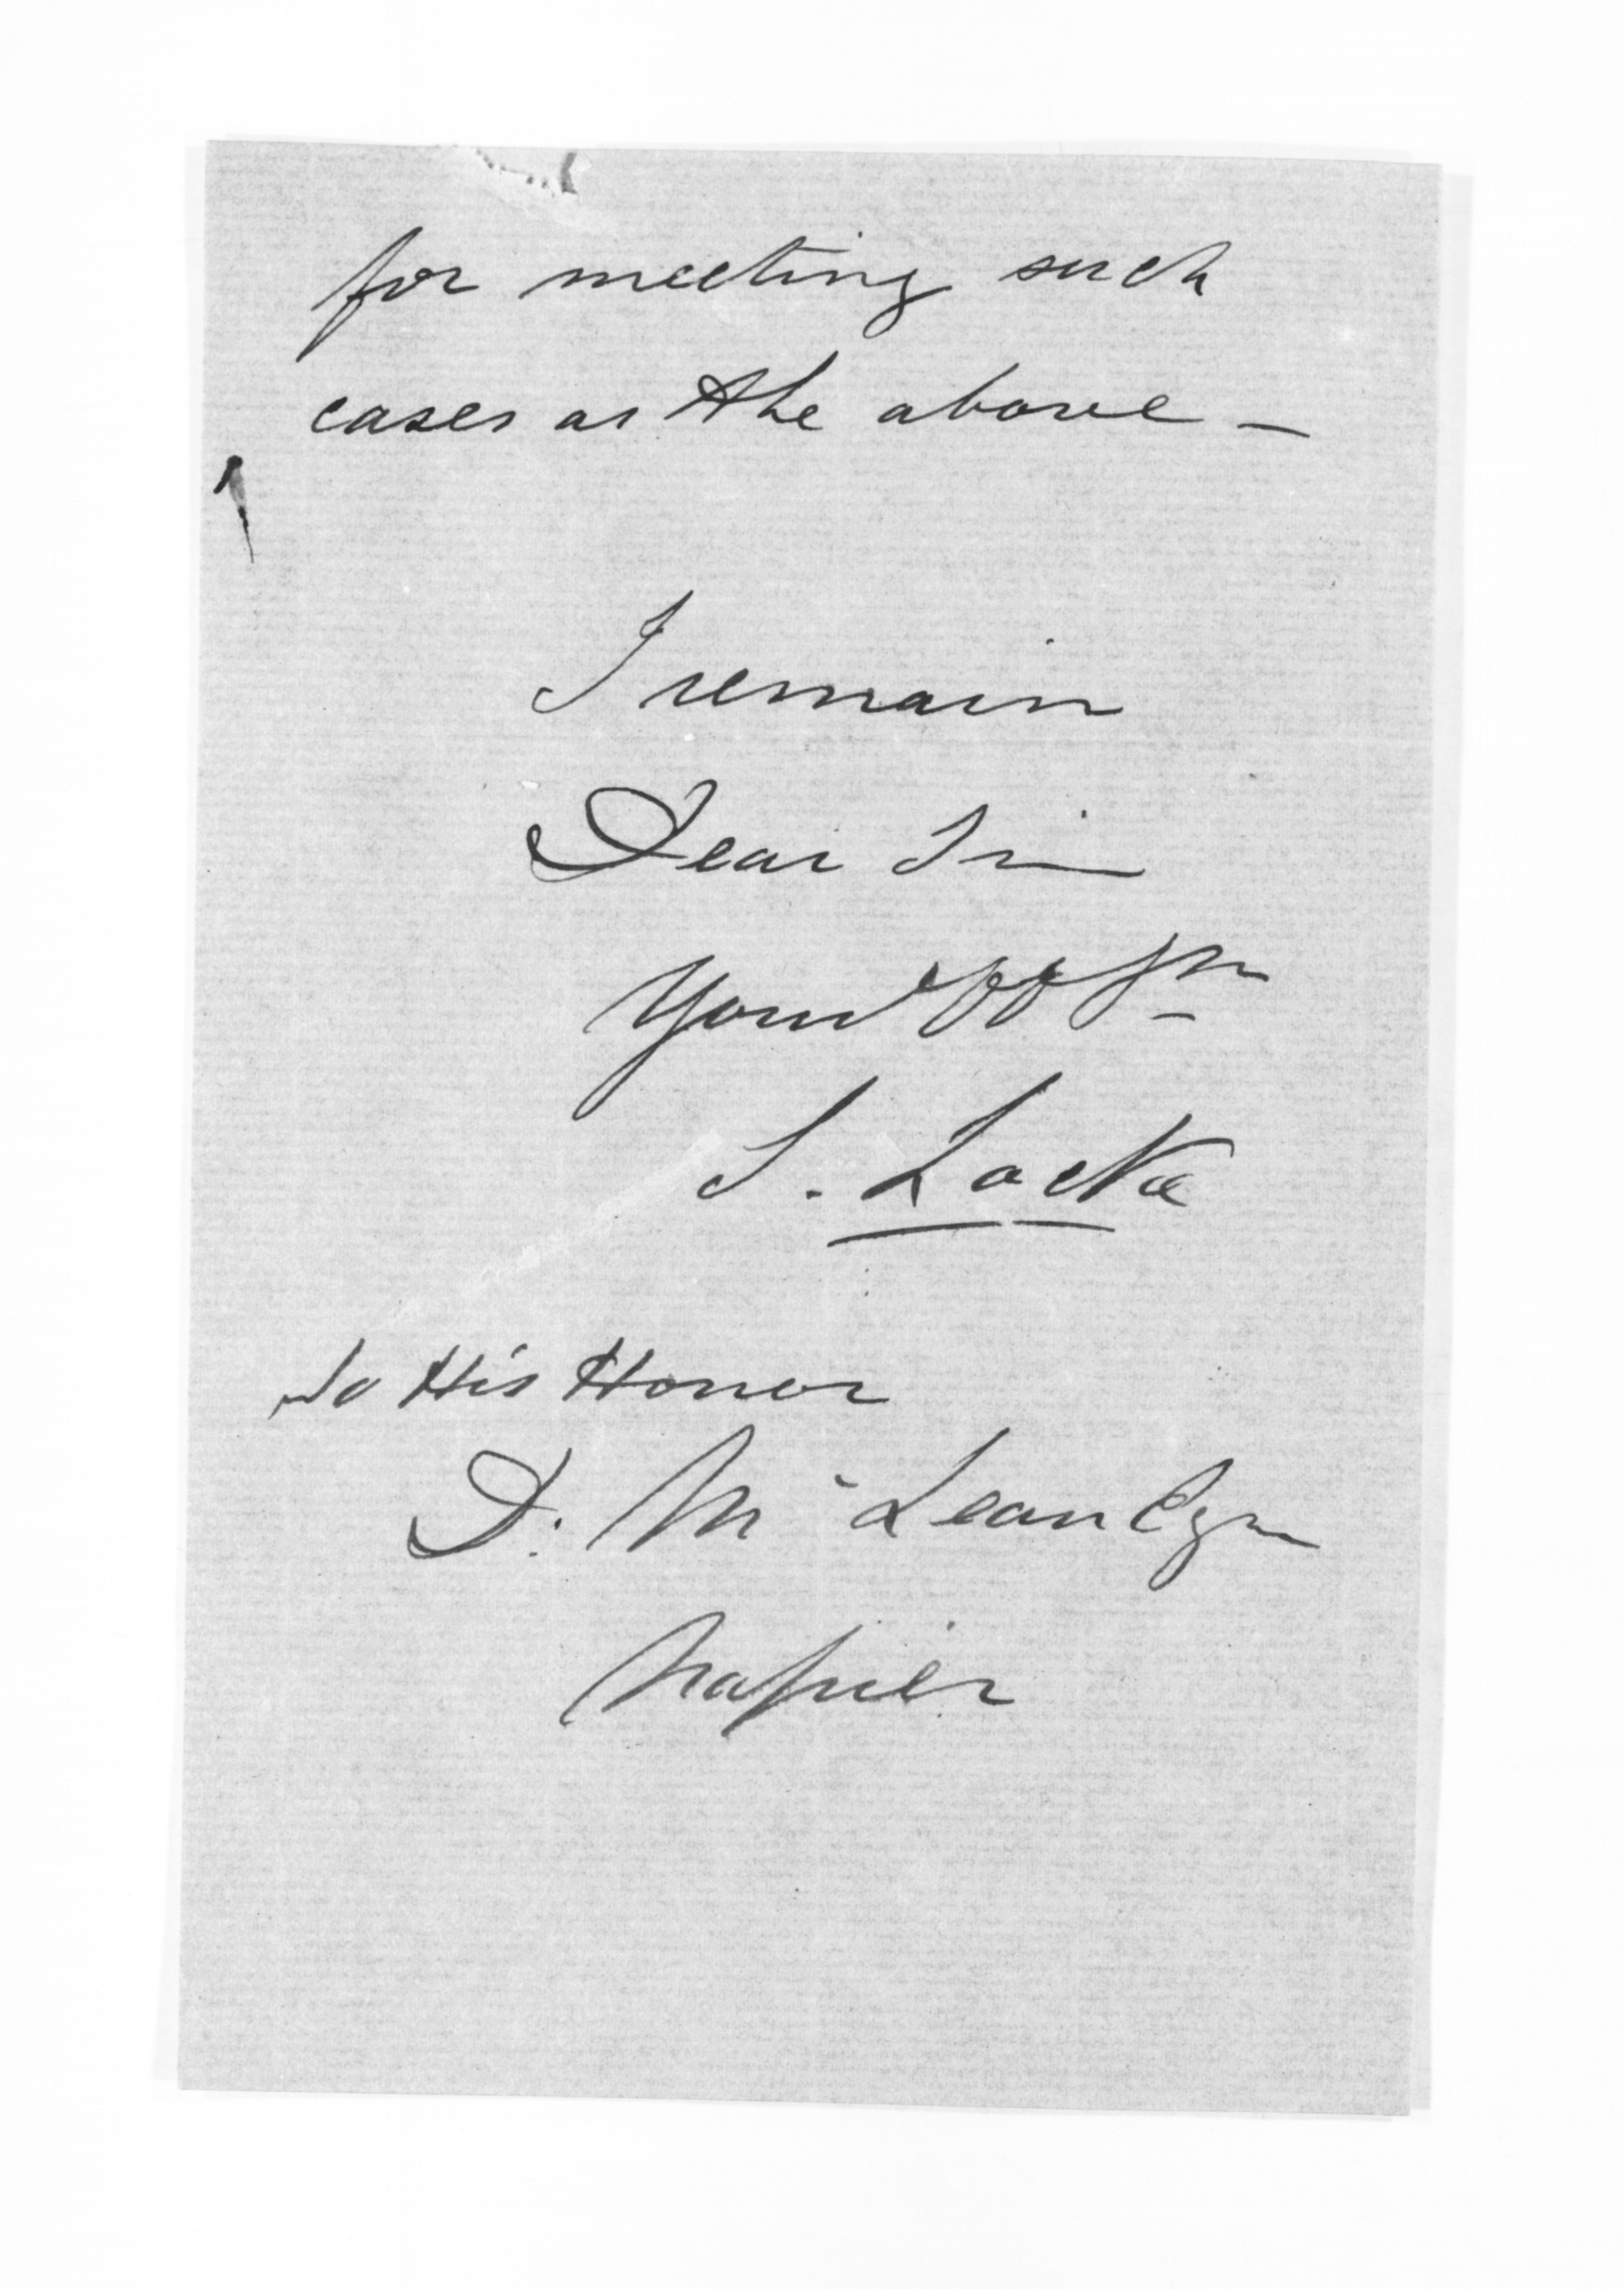 for meeting such
cases as the above –
I remain
Dear Sir
Yours
S. Locke
To His Honor
D. McLean Esqr
Napier